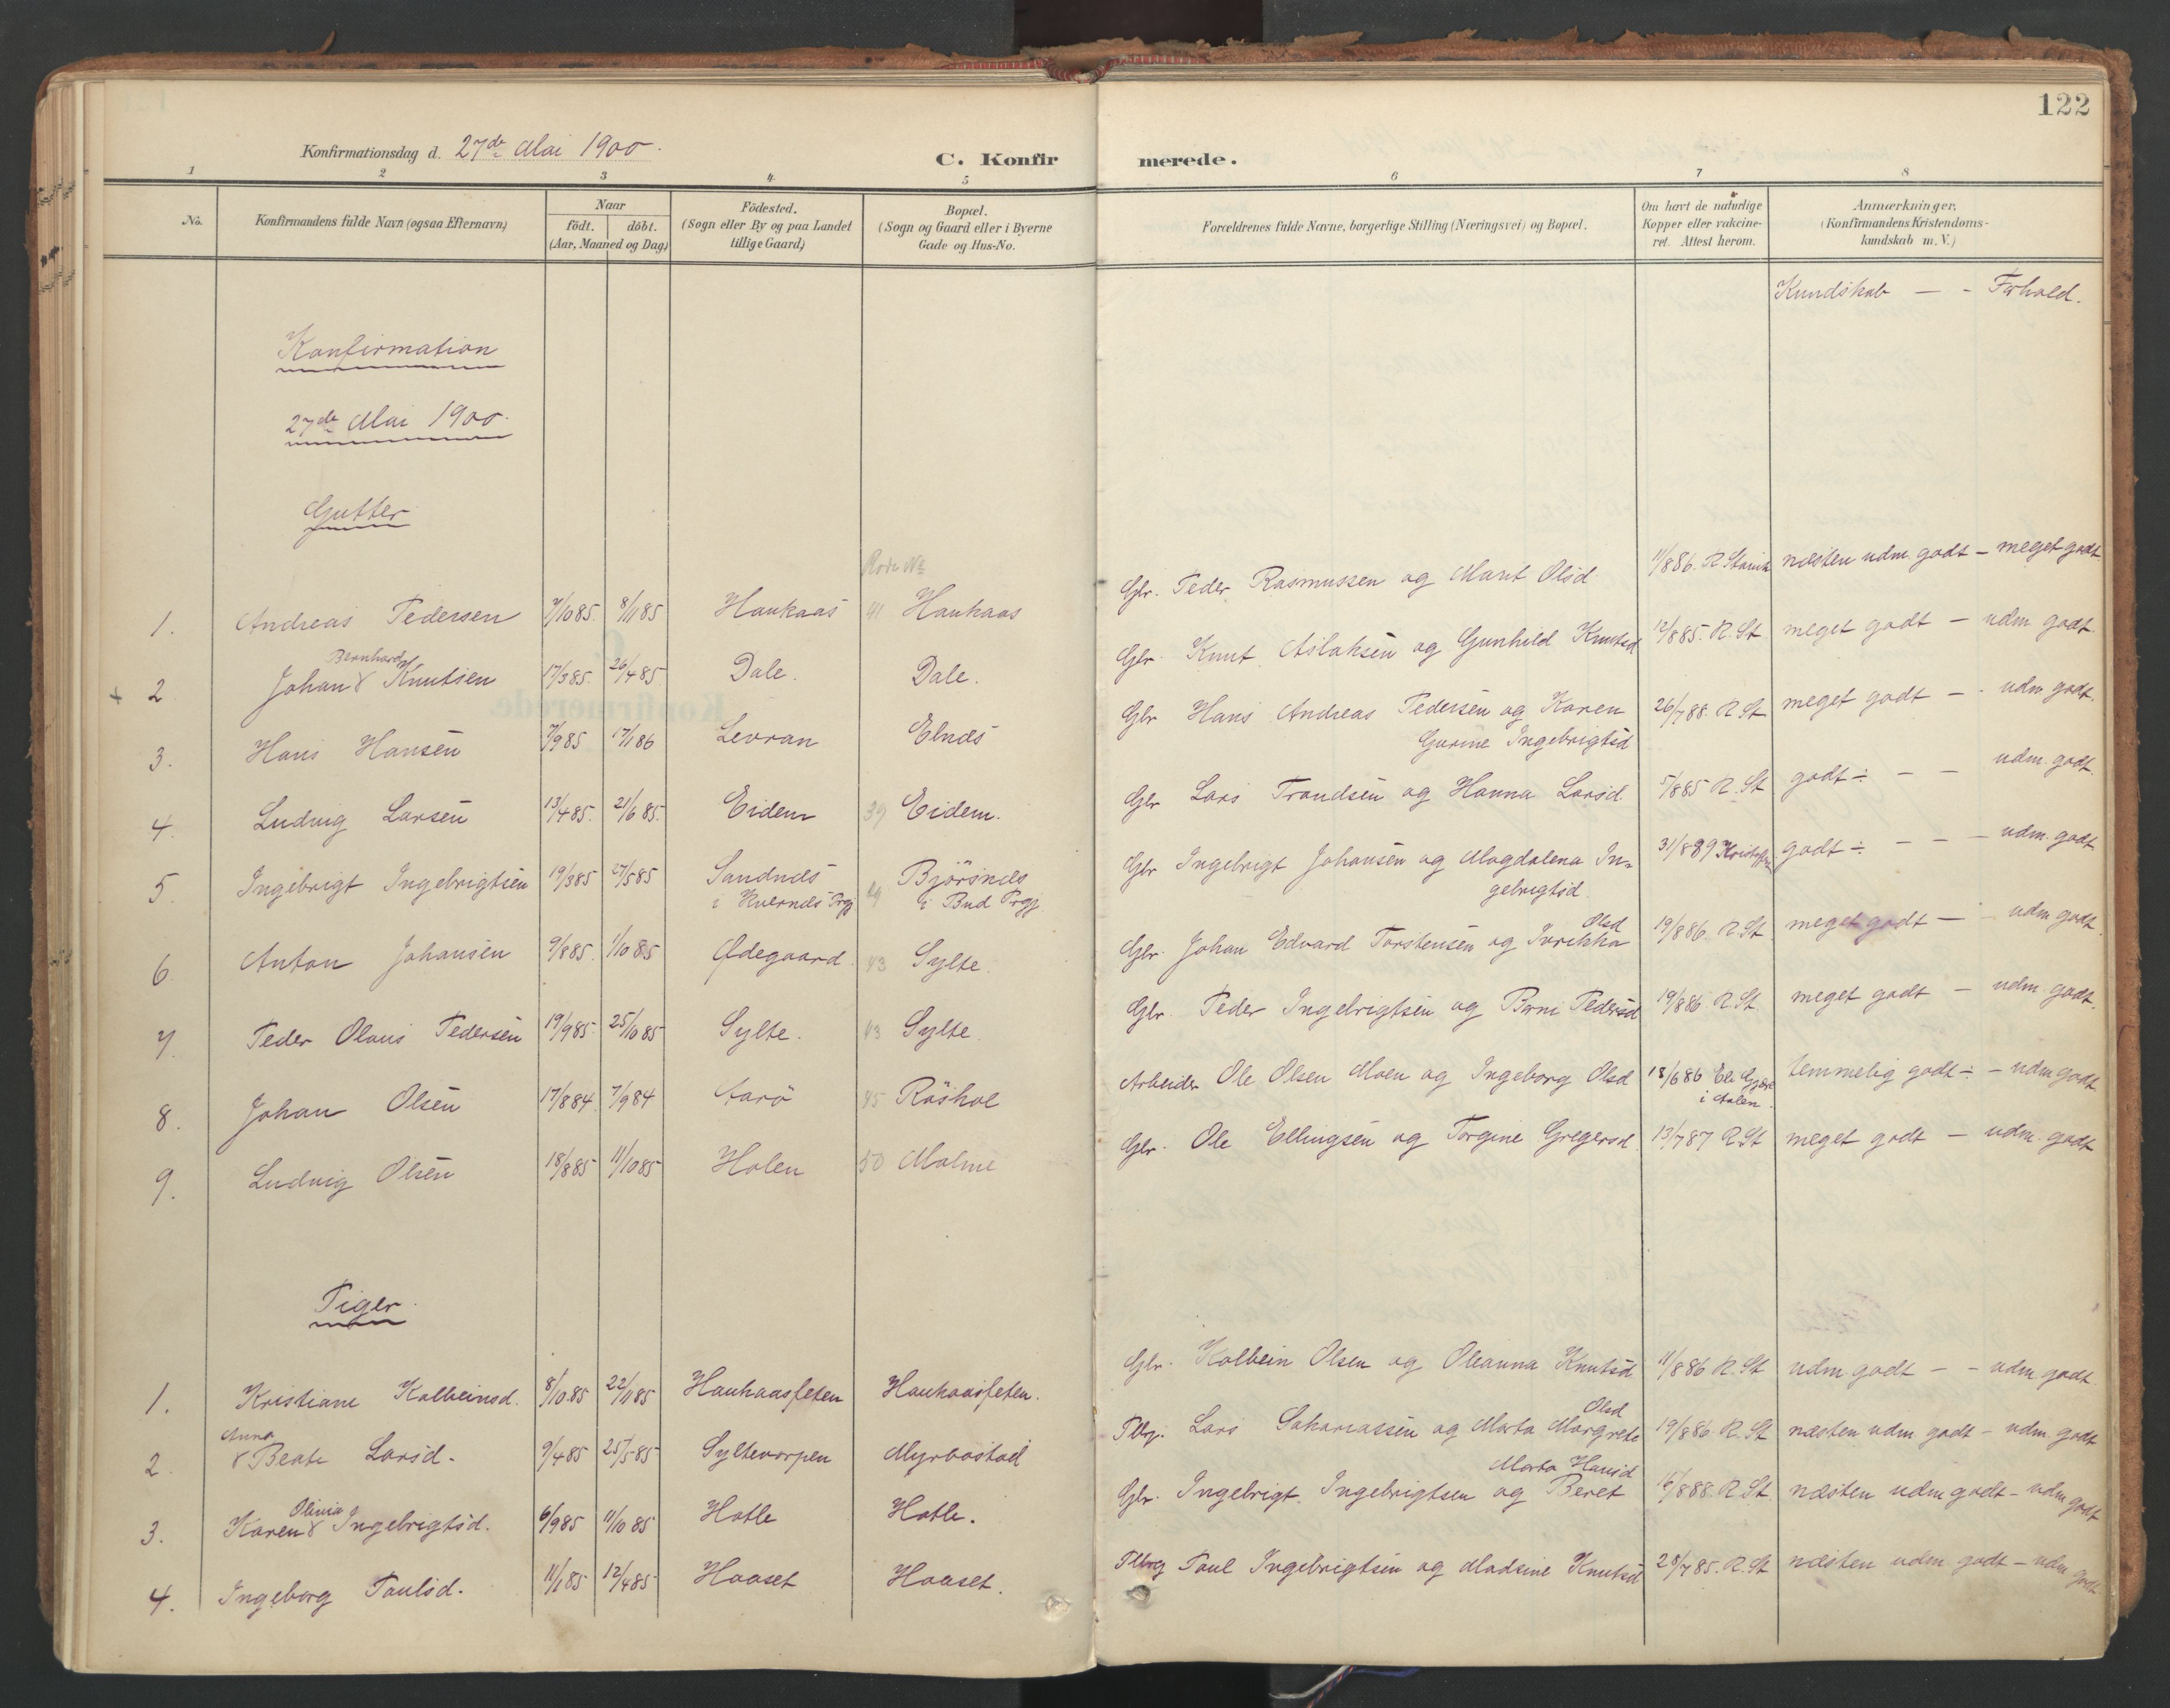 122
Konfirmationsdag d. 27de Mai 1900.
C. Konfirmerede.
1 2 3 4 5 6 7 8
No. Konfirmandens fulde Navn (ogsaa Efternavn) Naar födt. döbt. (Aar, Maaned og Dag) Födested. (Sogn eller By og paa Landet tillige Gaard) Bopæl. (Sogn og Gaard eller i Byerne Gade og Hus-No. Forældrenes fulde Navne, borgerlige Stilling (Næringsvei) og Bopæl. Om havt de naturlige Kopper eller vakcineret. Attest herom. Anmærkninger, (Konfirmandens Kristendomskundskab m. V.)
Kundskab — - Forhold.
Konfirmation
27de Mai 1900.
Gutter
Rode No
1. Andreas Pedersen 7/10 85. 8/11 85 Haukaas 41 Haukaas Gbr. Peder Rasmussen og Marit Olsd. 11/8 86. R. Starvik næsten udm. godt - meget godt.
2 Johan Bernhard Knutsen 17/3 85. 26/4 85 Dale. Dale. Gbr. Knut Aslaksen og Gunhild Knutsd 12/8 85. R. St. meget godt — udm. godt.
3. Hans Hansen 7/9 85 17/1 86 Levran Elnæs Gbr Hans Andreas Pedersen og Karen Gurine Ingebrigtsd 26/7 88. R. St meget godt — - udm. godt.
4. Ludvig Larsen 13/4 85. 21/6 85. Eidem 39 Eidem. Gbr Lars Trondsen og Hanna Larsd. 5/8 85 R. St godt ÷ — — udm. godt.
5. Ingebrigt Ingebrigtsen 19/3 85 27/5 85 Sandnæs i Kvernæs Prgj Björsnæs i Bud Prgj. Gbr Ingebrigt Johansen og Magdalena Ingebrigtsd. 31/8 89 godt ÷ — — — udm. godt
6 Anton Johansen 9/8 85. 1/10 85 Ødegaard. 43 Sylte. Gbr. Johan Edvard Torstensen og Iverikka Olsd 19/8 86. R. St. meget godt — - udm godt.
7. Peder Olaus Pedersen 19/9 85. 25/10 85 Sylte. 43 Sylte. Gbr. Peder Ingebrigtsen og Berni Pedersd 19/8 86 R. St. meget godt — udm. godt.
8. Johan Olsen 17/8 84. 7/9 84 Aarö 45 Röshol Arbeider Ole Olsen Moen og Ingeborg Olsd 18/6 86 i Aalen. temmelig godt ÷ - udm godt
9. Ludvig Olsen 18/8 85 11/10 85 Holen 50 Malme Gbr. Ole Ellingsen og Torgine Gregersd. 13/7 87 R. St meget godt — udm. godt
Piger.
1. Kristiane Kolbeinsd. 8/10 85 22/11 85 Haukaasfeten Haukaasfeten. Gbr. Kolbein Olsen og Oleanna Knutsd. 11/8 86 R. St udm. godt — - udm. godt.
2. Anna Beate Larsd. 9/4 85 25/5 85 Syltevorpen Myrbostad Plbg. Lars Sakariassen og Marta Margrete Olsd 19/8 86 R. St næsten udm. godt - udm. godt
3. Karen Olivia Ingebrigtsd. 6/9 85 11/10 85 Hatle Hatle. Gbr. Ingebrigt Ingebrigtsen og Beret Marta Hansd 16/8 88. R. St. næsten udm godt - udm godt
4. Ingeborg Paulsd. 11/1 85 12/4 85 Haaset Haaset. Plbrg Paul Ingebrigtsen og Madsine Knutsd 28/7 85. R. St næsten udm. godt - udm godt